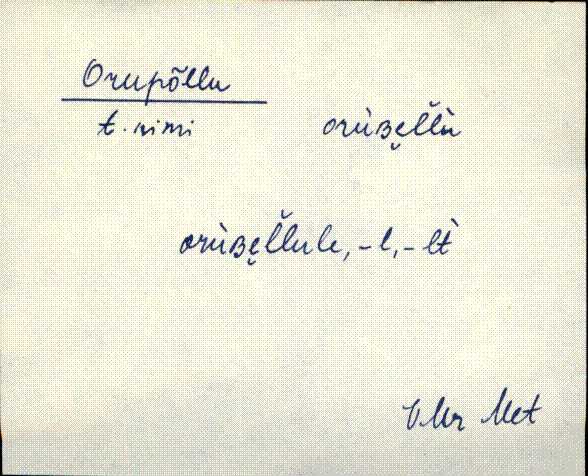 Orupõllu
t. nimi orùʙe̮l̆l̆ù
orùʙe̮l̆lule, -l, -lt̀
V.Mr Met